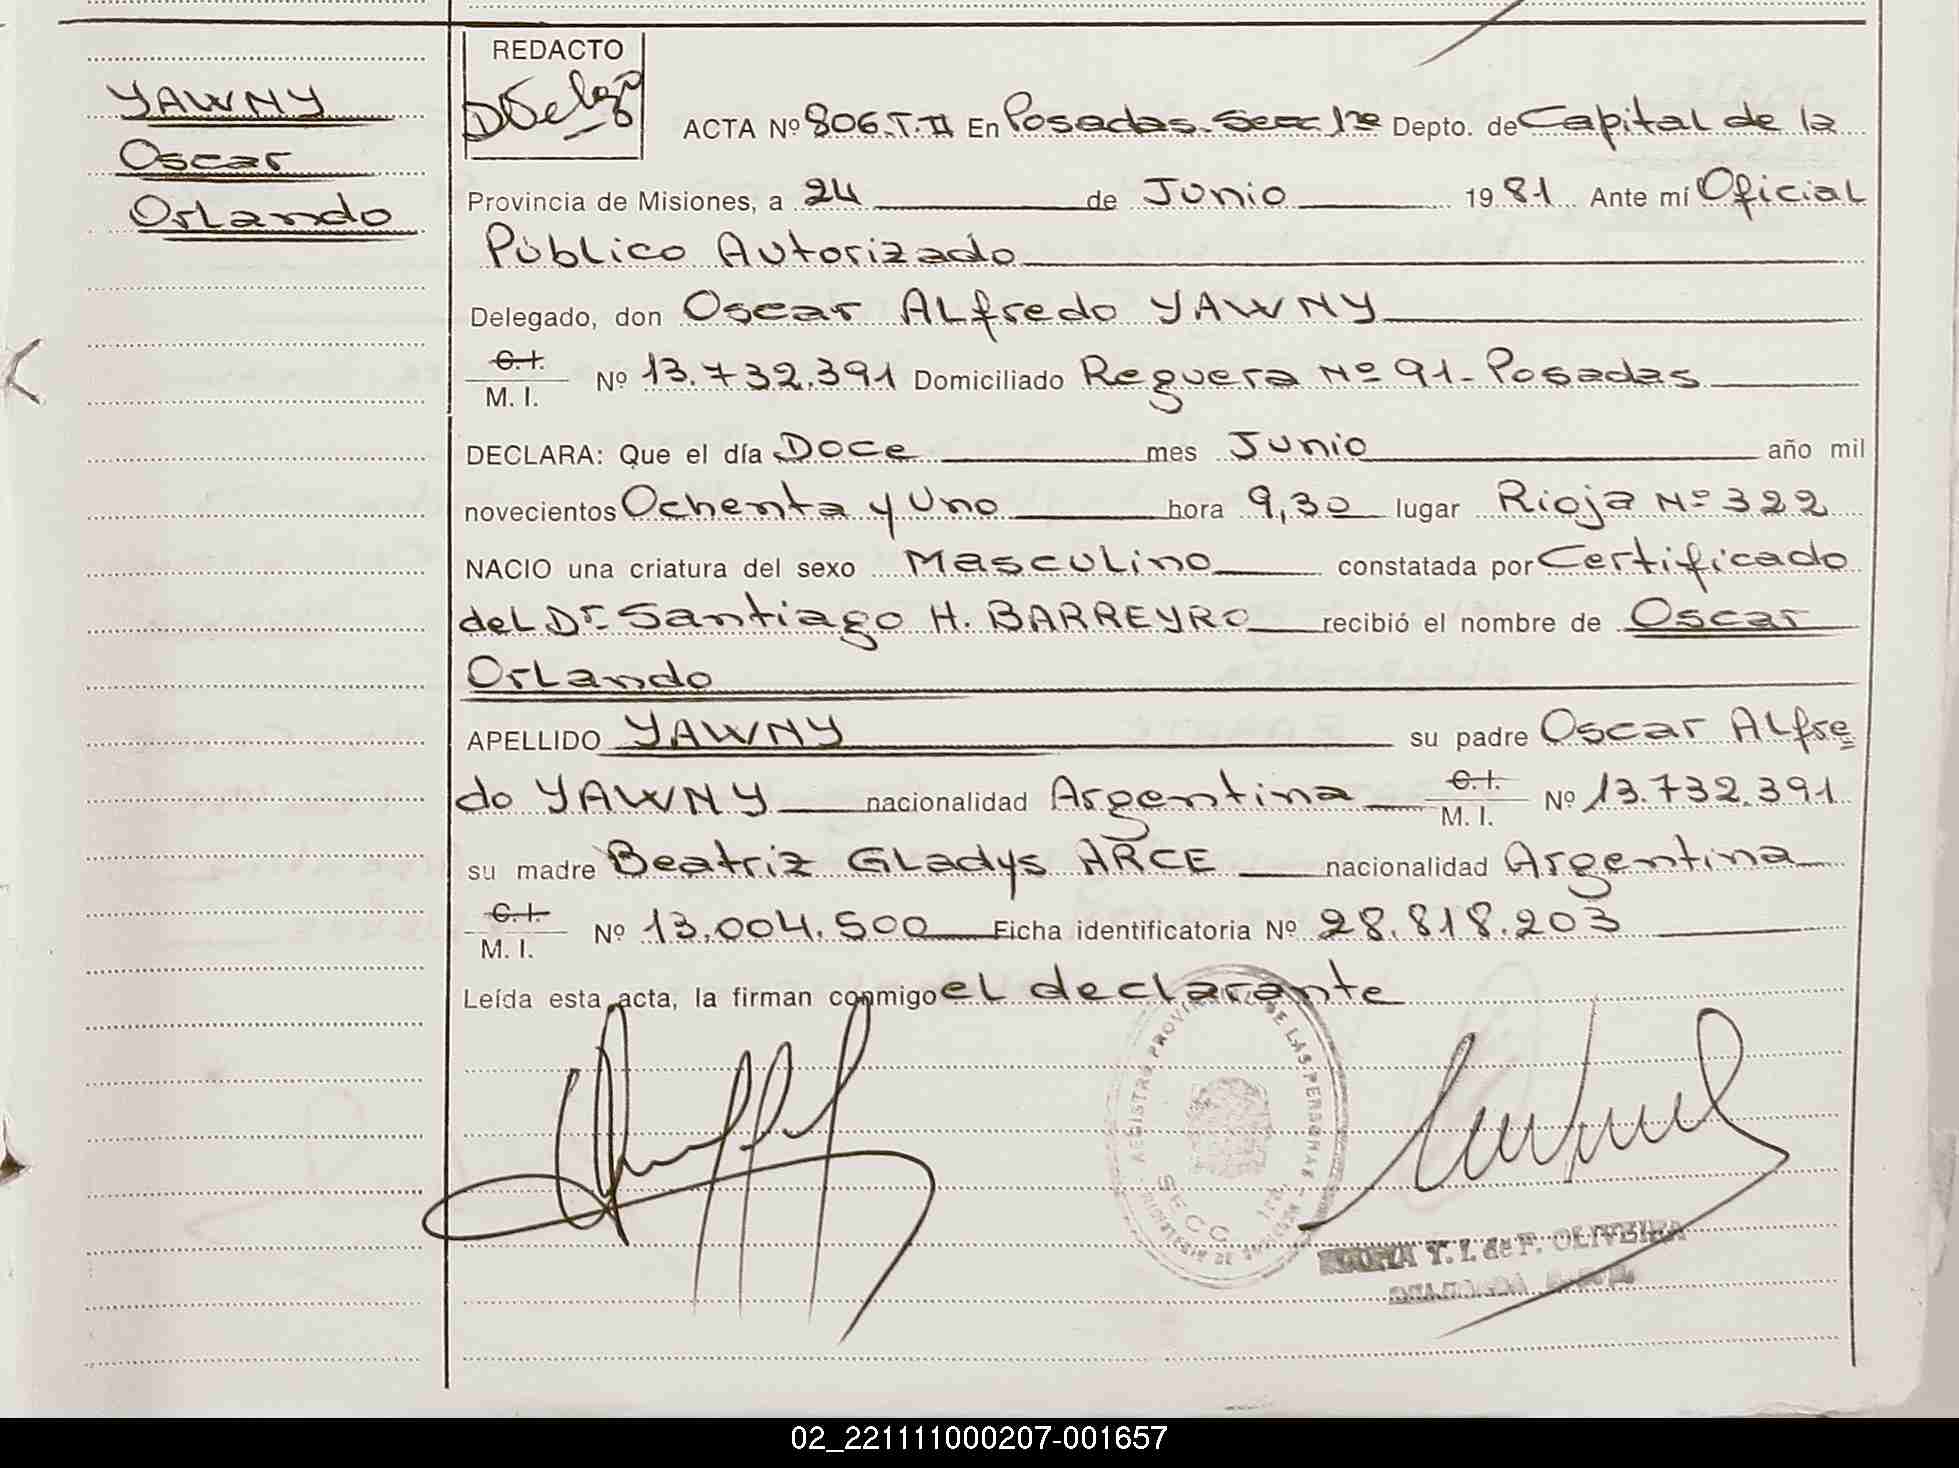 YAWNY
Oscar
Orlando
REDACTO
ACTA Nº 806.T.II En Posadas-Secc 1ra Depto. de Capital de la
Provincia de Misiones, a 24 de Junio 1981 Ante mí Oficial
Público Autorizado
Delegado, don Oscar ALfredo YAWNY
C.I.
M. I. Nº 13.732.391 Domiciliado Reguera Nº 91-Posadas
DECLARA: Que el día Doce mes Junio año mil
novecientos Ochenta y Uno hora 9,30 lugar Rioja Nº 322
NACIO una criatura del sexo Masculino constatada por Certificado
del Dr. Santiago H. BARREYRO recibió el nombre de Oscar
Orlando
APELLIDO YAWNY su padre Oscar ALfre
do YAWNY nacionalidad Argentina C.I. M. I. Nº 13.732.391
su madre Beatriz GLadys ARCE nacionalidad Argentina
C.I.
M. I. Nº 13.004.500 Ficha identificatoria Nº 28.818.203
Leída esta acta, la firman conmigo el declarante
REGISTRO PROVINCIAL DE LAS PERSONAS
SECC. 1ra
Y. I. de F. OLIVEIRA
02_221111000207-001657